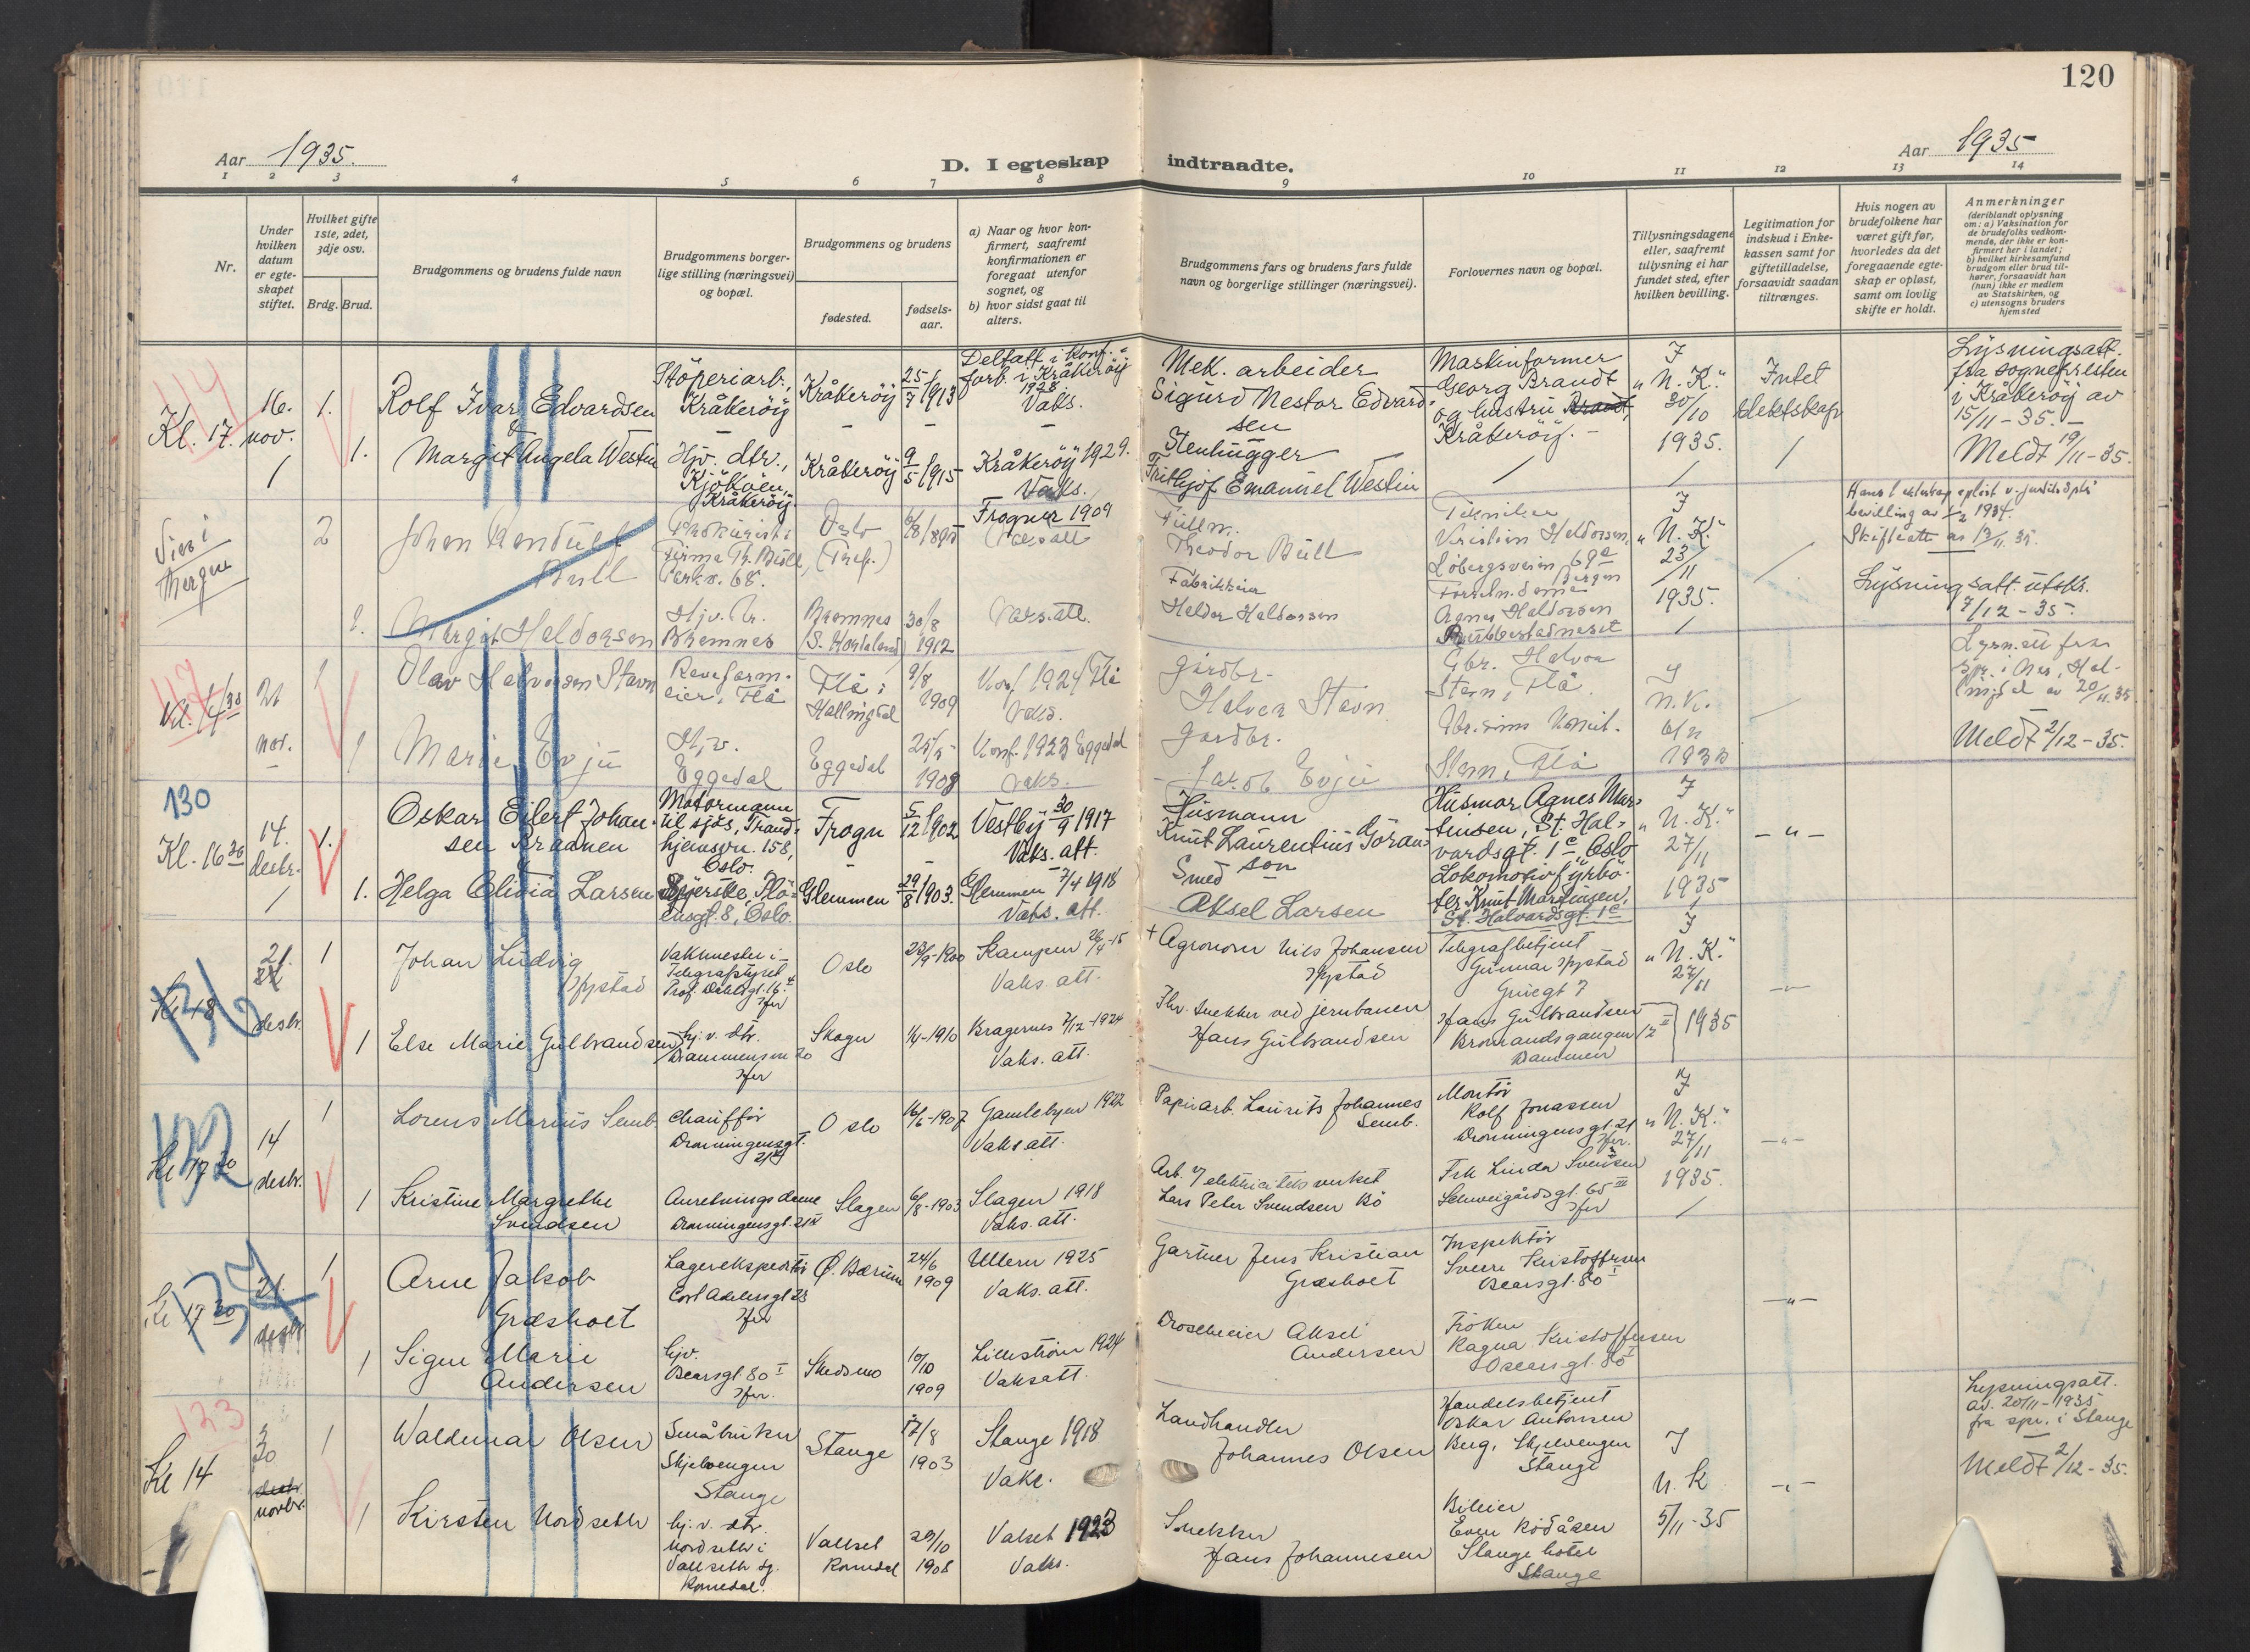 120
Aar 1935.
D. I egteskap indtraadte.
Aar 1935
1 2 3 4 5 6 7 8 9 10 11 12 13 14
Nr.
Under
hvilken
datum
er egte-
skapet
stiftet.
Hvilket gifte
1ste, 2det,
3dje osv.
Brdg. Brud.
Brudgommens og brudens fulde navn
Brudgommens borger-
lige stilling (næringsvei)
og bopæl.
Brudgommens og brudens
fødested.
fødsels-
aar.
a) Naar og hvor kon-
firmert, saafremt
konfirmationen er
foregaat utenfor
sognet, og
b) hvor sidst gaat til
alters.
Brudgommens fars og brudens fars fulde
navn og borgerlige stillinger (næringsvei).
Forlovernes navn og bopæl.
Tillysningsdagene
eller, saafremt
tillysning ei har
fundet sted, efter
hvilken bevilling.
Legitimation for
indskud i Enke-
kassen samt for
giftetilladelse,
forsaavidt saadan
tiltrænges.
Hvis nogen av
brudefolkene har
været gift før,
hvorledes da det
foregaaende egte-
skap er opløst,
samt om lovlig
skifte er holdt.
Anmerkninger
(deriblandt oplysning
om: a) Vaksination for
de brudefolks vedkom-
mende, der ikke er kon-
firmert her i landet;
b) hvilket kirkesamfund
brudgom eller brud til-
hører, forsaavidt han
(hun) ikke er medlem
av Statskirken, og
c) utensogns bruders
hjemsted
114
Kl. 17.
16.
nov.
1.
Rolf Ivar Edvardsen
&
Støperiarb.,
Kråkerøy
Kråkerøy
25/7 1913
Deltatt i konf.-
forb. i Kråkerøy
1928.
Vaks.
Mek. arbeider
Sigurd Nestor Edvard-
sen
Maskinformer
Georg Brandt
og hustru Brandt,
Kråkerøy. -
I
"N. K."
30/10
1935.
Intet
slektskap
Lysningsatt.
fra sognepresten
i Kråkerøy av
15/11 - 35. -
Meldt 19/11 - 35.
1.
Margit Angela Westin
Hjv. dtr.,
Kjøkøen,
Kråkerøy.
Kråkerøy
9/5 1915
Kråkerøy 1929.
Vaks.
Stenhugger
Frithjof Emanuel Westin
Viet i
Bergen
2
Johan Randulf
Bull
Prokurist i
Firma Th. Bull,
Parkv. 68.
Oslo
(Tref.)
Frogner 1909
Vaks att
Fullm.
Theodor Bull
Kristian Haldorsen,
Løbergsveien 69a
Bergen
I
"N. K."
23/11
1935.
Hans 1 ekteskap opløst v. justitsdpts
bevilling av 1/2 1934.
Skifteatt av 13/11. 35.
Lysningsatt. utstkr.
7/12 - 35.
Margit Haldorsen
Hjv. dr.
Bremnes
Bremnes
(S. Hordaland)
30/8
1912
Vaks. att.
Fabrikkeier
Haldor Haldorsen
Agnes Haldorsen
Rubbestadneset
117
Kl. 14 30
nov.
1
Olav Halvorsen Stavn
Revefarm-
eier, Flå
Flå i
Hallingdal
9/8
1909
Konf 1924 Flå
Vaks.
Gårdbr.
Halvor Stavn
Gbr. Halvor
Stavn, Flå.
I
N. K.
6/11
1935
Lysn.att fra
spr. i Nes, Hal-
lingdal av 20/11.35
Meldt 2/12 - 35.
1
Marie Evju
Hjv.
Eggedal
Eggedal
25/5
1908
Konf. 1923 Eggedal
Vaks.
Gårdbr.
Jakob Evju
Stavn, Flå
130
Kl. 16 30
14.
desbr.
1.
Oskar Eilert Johan-
sen Braanen
&
Motormann
til sjøs, Trond-
hjemsvn. 158,
Oslo.
Frogn
5/12 1902
Vestby 30/9 1917
Vaks. att.
Husmann
Knut Laurentius Göran-
son
Husmor Agnes Mar-
tinsen, St. Hal-
vardsgt. 1c Oslo
Lokomotivfyrbø-
ter Knut Martinsen,
St. Halvardsgt. 1c
I
"N. K."
27/11
1935
- " -
1.
Helga Olivia Larsen
Syerske, Plö-
ensgt. 8, Oslo.
Glemmen
29/8 1903.
Glemmen 7/4 1918
Vaks. att.
Smed
Aksel Larsen
136
Kl 18
21.
desbr.
1
Johan Ludvig
Hystad
Vaktmester i
Telegrafstyret
Prof. Dahlsgt. 16.4
Her
Oslo
28/9-1900
Kampen 26/4-15
Vaks. att.
+ Agronom Nils Johansen
Hystad
Telegrafbetjent
Gunnar Hystad
Griegt 7
I
"N. K."
27/11
1935
1
Else Marie Gulbrandsen
Hj. v. dtr.
Drammensvn 20
Her
Skoger
1/4-1910
Bragernes 7/12-1924
Vaks. att.
Fhv. snekker ved jernbanen
Hans Gulbrandsen
Hans Gulbrandsen
Bromandsgangen 12 II
Drammen
132
Kl 17 30
14
desbr.
1
Lorens Marius Semb.
Chauffør
Dronningensgt.
21 IV
Oslo
16/6-1907
Gamlebyen 1922
Vaks att.
Papirarb. Laurits Johannes
Semb.
Montør
Rolf Jonassen
Dronningensgt. 21
Her.
I
"N. K."
27/11
1935.
- " -
1
Kristine Margrethe
Svendsen
Anretningsdame
Dronningensgt. 21 IV
Slagen
6/8-1903
Slagen 1918
Vaks. att.
Arb. v/ elektricitetsverket
Lars Peter Svendsen Bö
Frk Linda Svendsen
Schweigårdsgt. 65 III
Her
134
Kl 17 30
21.
desbr
1
Arne Jakob
Græsholt
Lagerekspeditør
Cort Adelersgt 23
Her
Ø. Bærum
24/6
1909
Ullern 1925
Vaks. att.
Gartner Jens Kristian
Græsholt
Inspektør
Sverre Kristoffersen
Oscarsgt. 80 I
- " -
1
Signe Marie
Andersen
hjv.
Oscarsgt. 80 I
Her.
Skedsmo
10/10
1909
Lillestrøm 1924
Vaks att.
Droscheeier Aksel
Andersen
Frøken
Ragna Kristoffersen
Oscarsgt. 80 I
123
Kl 14
30
desbr
novbr.
1
Waldemar Olsen
Småbruker
Skjelvengen
Stange
Stange
17/8
1903
Stange 1918
Vaks.
Landhandler
Johannes Olsen
Handelsbetjent
Oskar Antonsen
Berg, Skjelvengen
Stange
I
N. K
5/11-35
- " -
Lysningsatt.
av. 20/11-1935
fra spr. i Stange
Meldt 2/12 - 35.
1
Kirsten Nordseth
hj. v. dtr.
Nordseth i
Vallseth sg.
Romedal.
Vallset
Romedal
29/10
1908
Valset 1923
Vaks.
Snekker
Hans Johannesen
Bileier
Even Rödåsen
Stange hotel
Stange